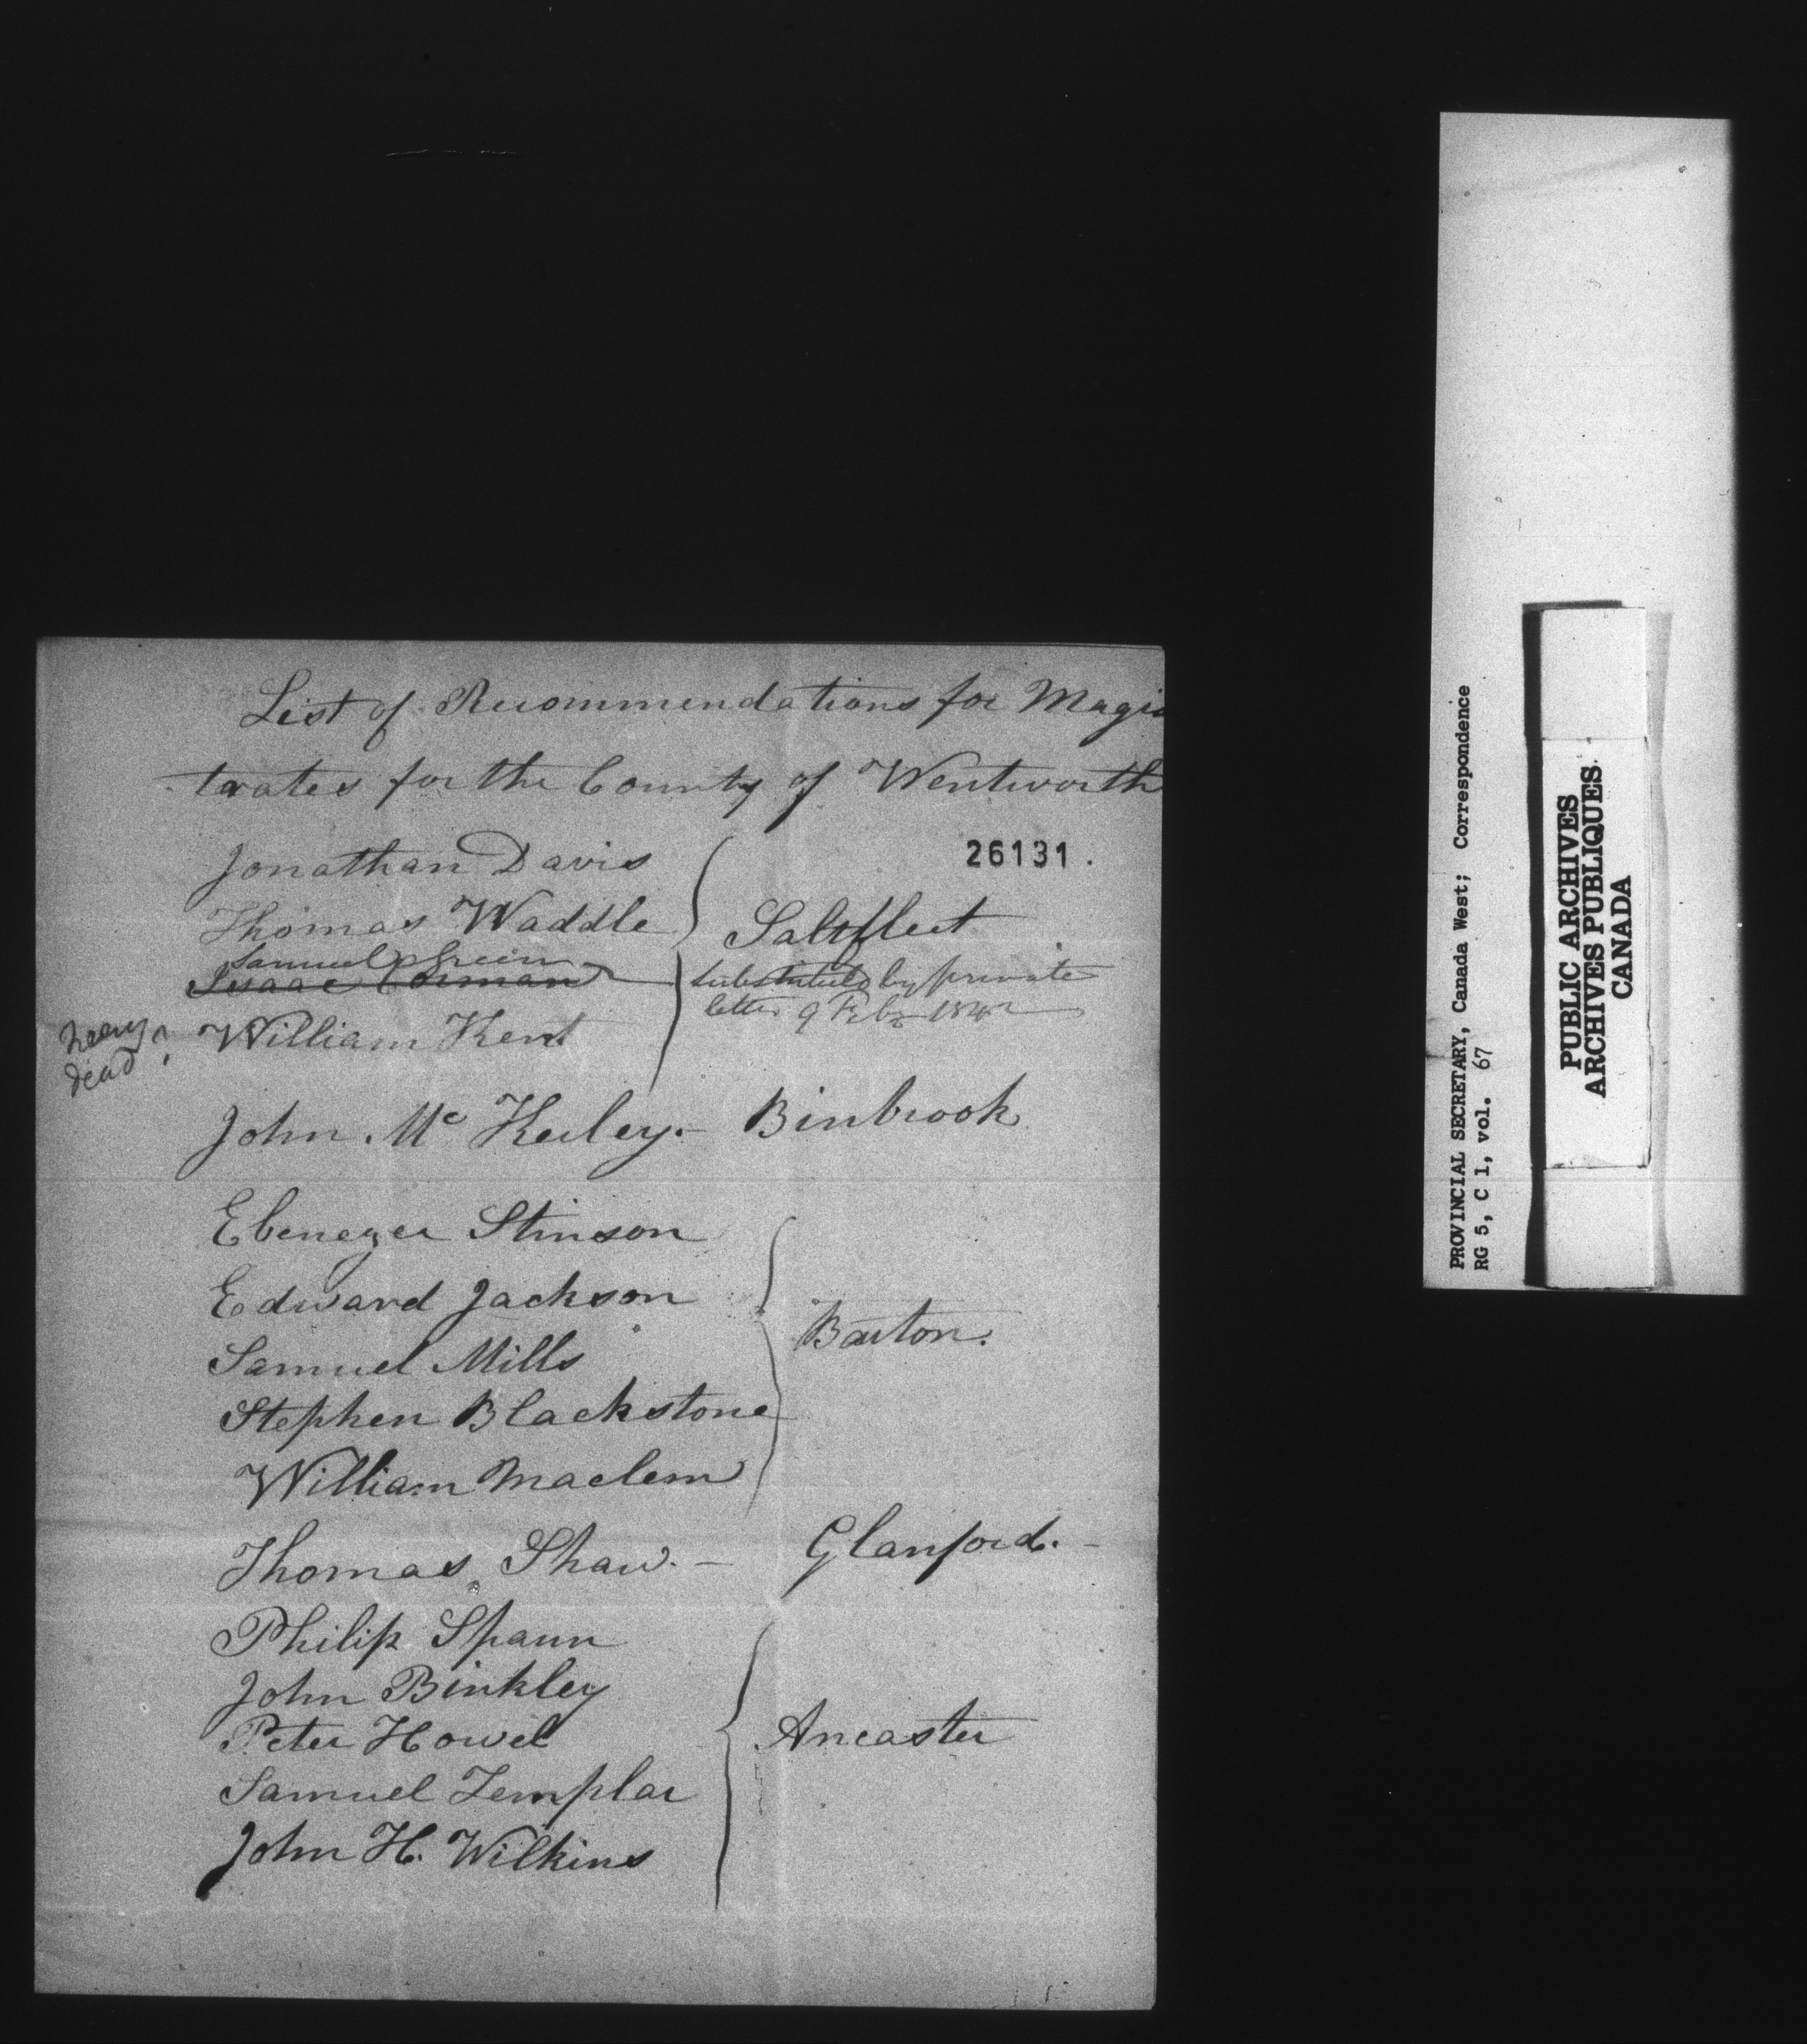 List of Recommendations for Magis
trates for the County of Wentworth
26131.
Jonathan Davis
Thomas Waddle
Saltfleet
Samuel Green
Isaac Corman
substituted by private
letter 9 Feby 1842
William Kent
dead?
John Mc Keiley.- Binbrook
Ebenezer Stinson
Edward Jackson
Samuel Mills
Barton.
Stephen Blackstone
William Maclem
Thomas Shaw. - Glanford. -
Philip Spaun
John Binkley
Peter Howel
Ancaster
Samuel Templar
John H. Wilkins
PROVINCIAL SECRETARY, Canada West; Correspondence
RG 5, C 1, vol. 67
PUBLIC ARCHIVES
ARCHIVES PUBLIQUES
CANADA